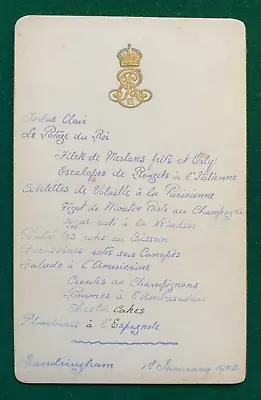 Tortue Clair
Le Potage du Roi
Filets de Merlans frits à l'Orly
Escalopes de Rougets à l'Italienne
Côtelettes de Volaille à la Parisienne
Gigot de Mouton Poële au Champagne
rôti à la Windsor
rotis au Cresson
rotis sur Canapés
Salade à l'Américaine
Croutes au Champignons
Pommes à l'Ambassadrice
Chester Cakes
à l'Espagnole
Sandringham 1st January